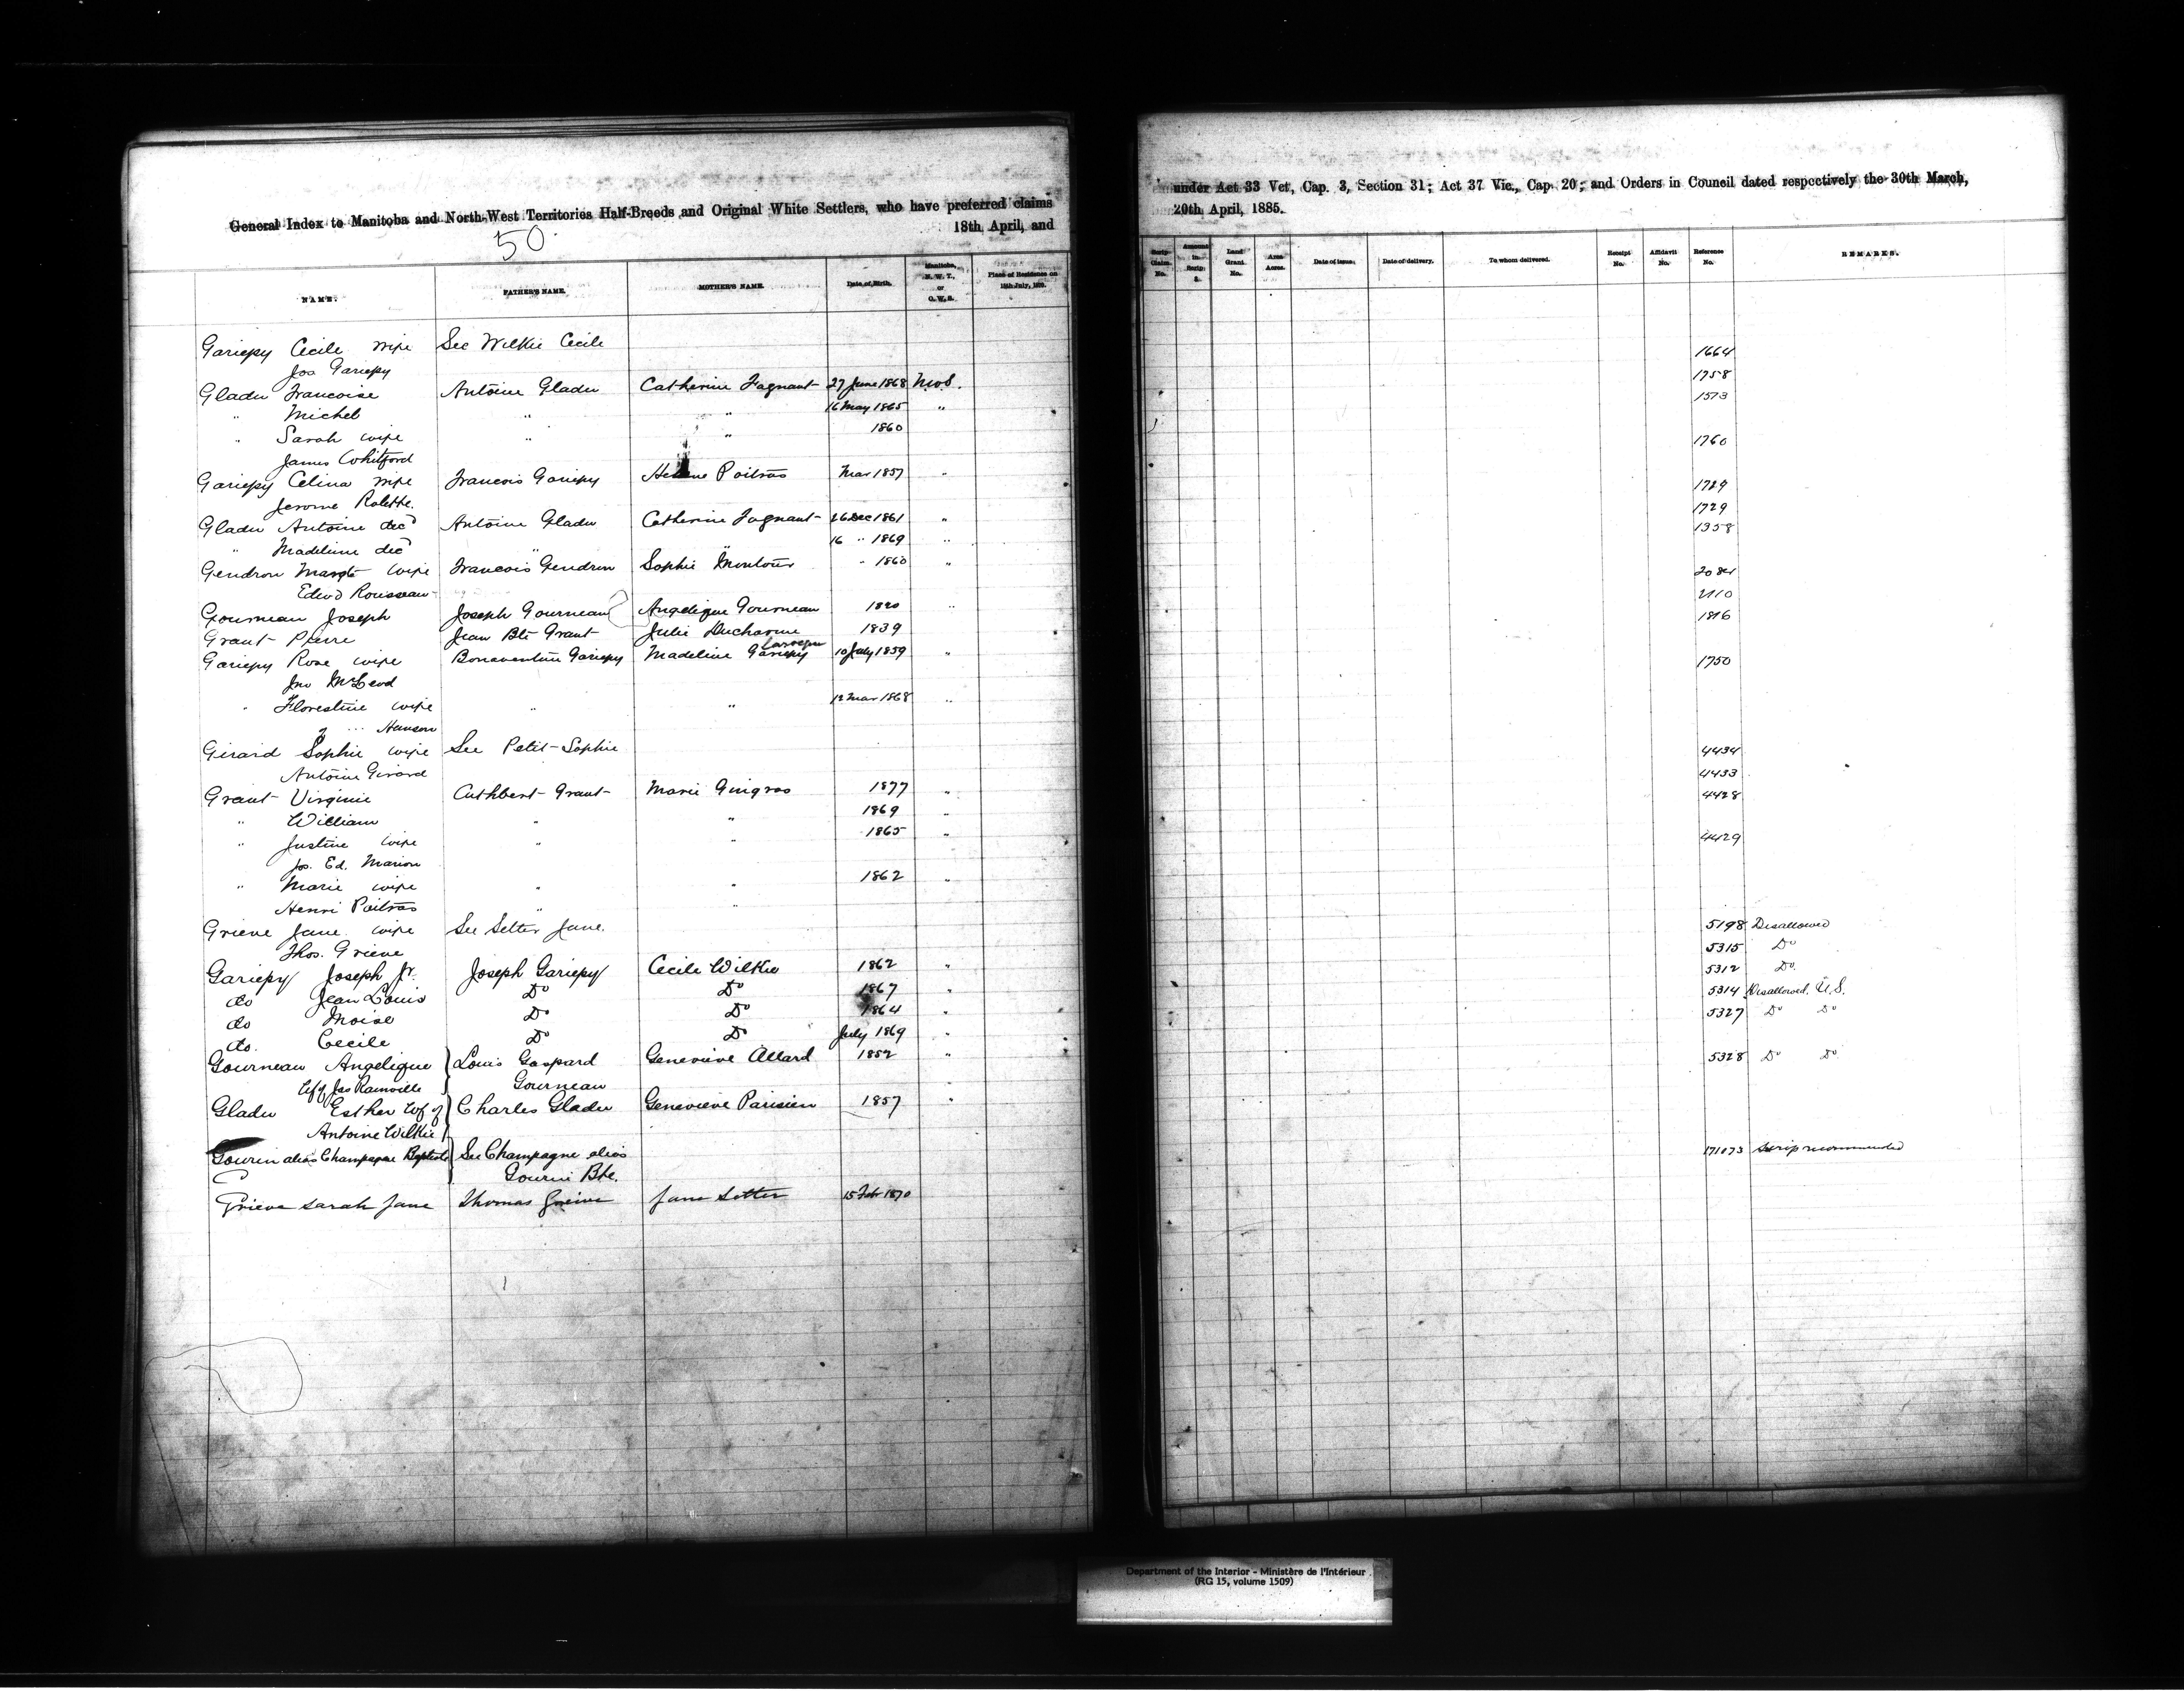 General Index to Manitoba and North-West Territories Half-Breeds and Original White Settlers, who have preferred claims
18th April, and
50
NAME. FATHER'S NAME. MOTHER'S NAME. Date of Birth. Manitoba, N. W. T., or O. W. S. Place of Residence on 15th July, 1870.
Gariepy Cecile wife See Wilkie Cecile
Jos Gariepy
Gladu Francoise Antoine Gladu Catherine Fagnant 27 June 1868
" Michel " " 16 May 1865 "
" Sarah wife " " 1860
James Whitford
Gariepy Celina wife Francois Gariepy Helene Poitras Mar 1857 "
Jerome Rolette.
Gladu Antoine decd Antoine Gladu Catherine Fagnant 26 Dec 1861 "
" Madeline decd " " 16 " 1869 "
Gendron Margte wife Francois Gendron Sophie Montour " 1860 "
Edwd Rousseau
Gourneau Joseph Joseph Gourneau Angelique Gourneau 1820 "
Grant Pierre Jean Bte Grant Julie Ducharme 1839
Gariepy Rose wife Bonaventure Gariepy Madeline Gariepy 10 July 1859 "
Jno McLeod
" Florestine wife " " 12 Mar 1868 "
" Hanson
Girard Sophie wife See Petit Sophie
Antoine Girard
Grant Virginie Cuthbert Grant Marie Gingras 1877 "
" William " " 1869
" Justine wife " " 1865 "
Jos. Ed. Marion
" Marie wife " " 1862 "
Henri Poitras " "
Grieve Jane wife See Setter Jane.
Thos. Grieve
Gariepy Joseph Jr. Joseph Gariepy Cecile Wilkie 1862 "
do Jean Louis Do Do 1867 "
do Moise Do Do 1864 "
do. Cecile Do Do July 1869 "
Gourneau Angelique Louis Gaspard Genevieve Allard 1852 "
Wf of Jas Rainville Gourneau
Gladu Esther Wf of Charles Gladu Genevieve Parisien 1857 "
Antoine Wilkie
Gourin alias Champagne Baptiste See Champagne alias
Gourin Bte.
Grieve Sarah Jane Thomas Greive Jane Setter 15 Feb 1870
under Act 33 Vet, Cap. 3, Section 31; Act 37 Vic., Cap. 20; and Orders in Council dated respectively the 30th March,
20th April, 1885.
Scrip Claim. No. Amount in Scrip $. Land Grant. No. Area Acres. Date of Issue. Date of delivery. To whom delivered. Receipt No. Affidavit No. Reference No. REMARKS.
1664
1758
1573
1760
1729
1358
2110
1816
1750
4434
4433
4428
4429
5198 Disallowed
5315 Do
5312 Do.
5314 Disallowed. U.S.
5327 Do Do
5328 Do Do
171073 Scrip recommended
Department of the Interior - Ministère de l'Intérieur
(RG 15, volume 1509)